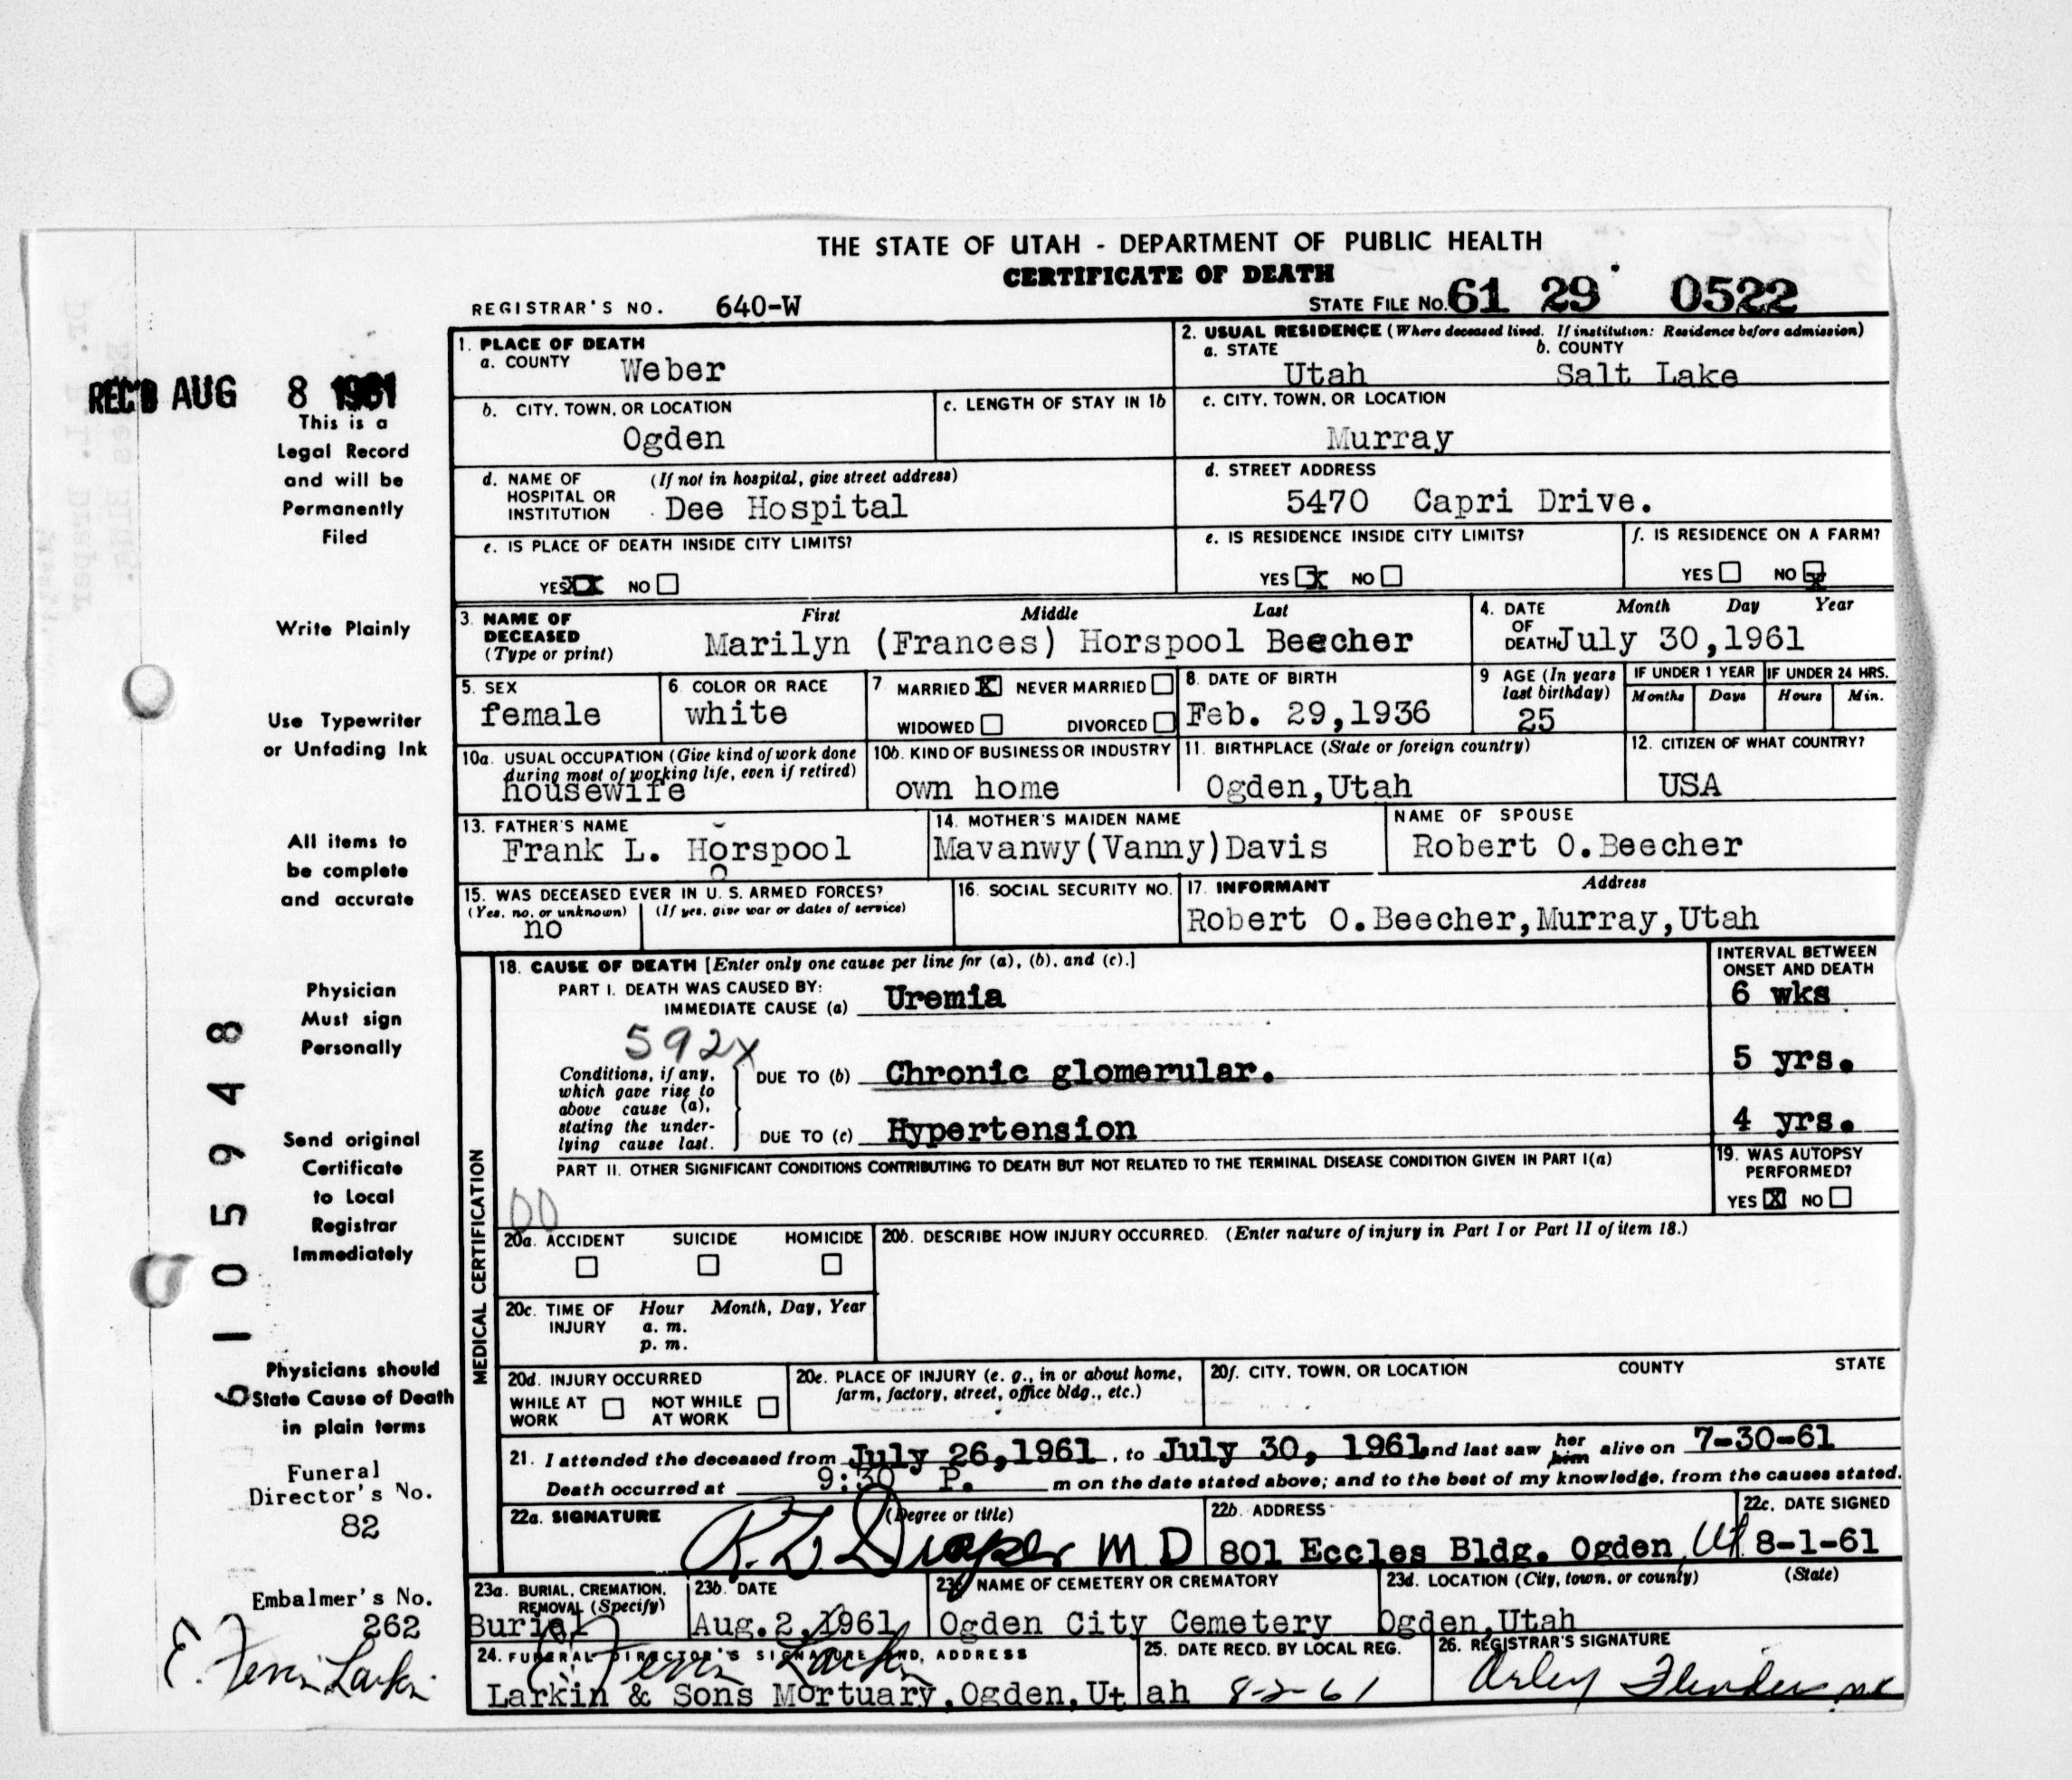 THE STATE OF UTAH - DEPARTMENT OF PUBLIC HEALTH
CERTIFICATE OF DEATH
REGISTRAR'S NO. 640-W STATE FILE NO. 61 29 0522
REC'D AUG 8 1961
This is a
Legal Record
and will be
Permanently
Filed
Write Plainly
Use Typewriter
or Unfading Ink
All items to
be complete
and accurate
Physician
Must sign
Personally
Send original
Certificate
to Local
Registrar
Immediately
Physicians should
State Cause of Death
in plain terms
Funeral
Director's No.
82
Embalmer's No.
262
E. Ferrin Larkin
6105948
1. PLACE OF DEATH
a. COUNTY Weber
2. USUAL RESIDENCE (Where deceased lived. If institution: Residence before admission)
a. STATE Utah b. COUNTY Salt Lake
b. CITY, TOWN, OR LOCATION Ogden
c. LENGTH OF STAY IN 1b
c. CITY, TOWN, OR LOCATION Murray
d. NAME OF HOSPITAL OR INSTITUTION (If not in hospital, give street address) Dee Hospital
d. STREET ADDRESS 5470 Capri Drive.
e. IS PLACE OF DEATH INSIDE CITY LIMITS?
YES XX NO
e. IS RESIDENCE INSIDE CITY LIMITS?
YES X NO
f. IS RESIDENCE ON A FARM?
YES NO X
3. NAME OF DECEASED (Type or print) First Middle Last
Marilyn (Frances) Horspool Beecher
4. DATE OF DEATH Month Day Year
July 30,1961
5. SEX female
6. COLOR OR RACE white
7 MARRIED X NEVER MARRIED
WIDOWED DIVORCED
8. DATE OF BIRTH Feb. 29,1936
9 AGE (In years last birthday) 25
IF UNDER 1 YEAR Months Days
IF UNDER 24 HRS. Hours Min.
10a. USUAL OCCUPATION (Give kind of work done during most of working life, even if retired)
housewife
10b. KIND OF BUSINESS OR INDUSTRY
own home
11. BIRTHPLACE (State or foreign country)
Ogden,Utah
12. CITIZEN OF WHAT COUNTRY?
USA
13. FATHER'S NAME
Frank L. Horspool
o
14. MOTHER'S MAIDEN NAME
Mavanwy(Vanny)Davis
NAME OF SPOUSE
Robert O.Beecher
15. WAS DECEASED EVER IN U. S. ARMED FORCES?
(Yes, no, or unknown) (If yes, give war or dates of service)
no
16. SOCIAL SECURITY NO.
17. INFORMANT Address
Robert O.Beecher,Murray,Utah
MEDICAL CERTIFICATION
18. CAUSE OF DEATH [Enter only one cause per line for (a), (b), and (c).]
INTERVAL BETWEEN ONSET AND DEATH
PART I. DEATH WAS CAUSED BY:
IMMEDIATE CAUSE (a) Uremia 6 wks
592x
Conditions, if any, which gave rise to above cause (a), stating the underlying cause last.
DUE TO (b) Chronic glomerular. 5 yrs.
DUE TO (c) Hypertension 4 yrs.
PART II. OTHER SIGNIFICANT CONDITIONS CONTRIBUTING TO DEATH BUT NOT RELATED TO THE TERMINAL DISEASE CONDITION GIVEN IN PART I(a)
00
19. WAS AUTOPSY PERFORMED?
YES X NO
20a. ACCIDENT SUICIDE HOMICIDE
20b. DESCRIBE HOW INJURY OCCURRED. (Enter nature of injury in Part I or Part II of item 18.)
20c. TIME OF INJURY Hour Month, Day, Year
a. m.
p. m.
20d. INJURY OCCURRED
WHILE AT WORK NOT WHILE AT WORK
20e. PLACE OF INJURY (e. g., in or about home, farm, factory, street, office bldg., etc.)
20f. CITY, TOWN, OR LOCATION COUNTY STATE
21. I attended the deceased from July 26,1961, to July 30, 1961 and last saw her him alive on 7-30-61
Death occurred at 9:30 P. m on the date stated above; and to the best of my knowledge, from the causes stated.
22a. SIGNATURE (Degree or title)
R. L. Draper M D
22b. ADDRESS
801 Eccles Bldg. Ogden, Ut.
22c. DATE SIGNED
8-1-61
23a. BURIAL, CREMATION, REMOVAL (Specify)
Burial
23b. DATE
Aug.2,1961
23c. NAME OF CEMETERY OR CREMATORY
Ogden City Cemetery
23d. LOCATION (City, town, or county) (State)
Ogden,Utah
24. FUNERAL DIRECTOR'S SIGNATURE AND, ADDRESS
E. Ferrin Larkin
Larkin & Sons Mortuary,Ogden,Utah
25. DATE RECD. BY LOCAL REG.
8-2-61
26. REGISTRAR'S SIGNATURE
Arley Flinders